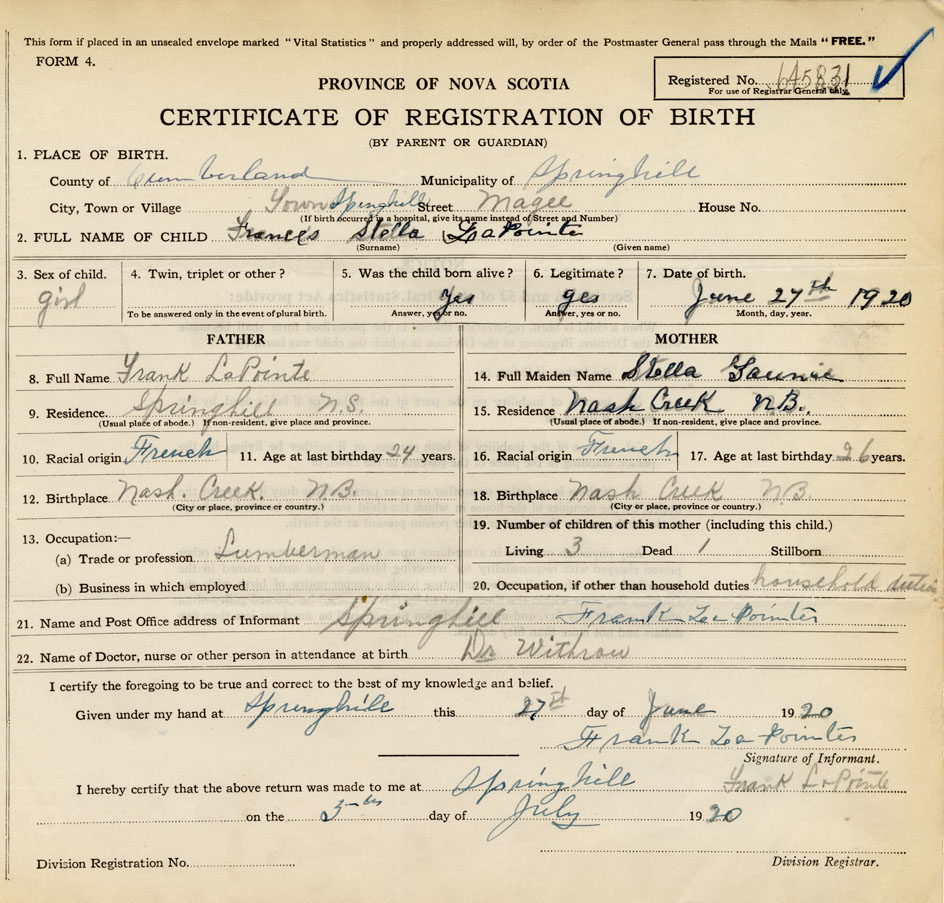 This form if placed in an unsealed envelope marked "Vital Statistics" and properly addressed will, by order of the Postmaster General pass through the Mails "FREE."
FORM 4.
Registered No. 645831
For use of Registrar General only.
PROVINCE OF NOVA SCOTIA
CERTIFICATE OF REGISTRATION OF BIRTH
(BY PARENT OR GUARDIAN)
1. PLACE OF BIRTH.
County of Cumberland Municipality of Springhill
City, Town or Village Town Springhill Street Magee House No.
(If birth occurred in a hospital, give its name instead of Street and Number)
2. FULL NAME OF CHILD Frances Stella LaPointe
(Surname) (Given name)
3. Sex of child. 4. Twin, triplet or other? 5. Was the child born alive? 6. Legitimate? 7. Date of birth.
girl Yes yes June 27th 1920
To be answered only in the event of plural birth. Answer, yes or no. Answer, yes or no. Month, day, year.
FATHER
8. Full Name Frank LaPointe
9. Residence. Springhill N.S.
(Usual place of abode.) If non-resident, give place and province.
10. Racial origin French 11. Age at last birthday 24 years.
12. Birthplace Nash. Creek. N.B.
(City or place, province or country.)
13. Occupation:—
(a) Trade or profession Lumberman
(b) Business in which employed
MOTHER
14. Full Maiden Name Stella
15. Residence Nash Creek N.B.
(Usual place of abode.) If non-resident, give place and province.
16. Racial origin French 17. Age at last birthday 26 years.
18. Birthplace Nash Creek N.B.
(City or place, province or country.)
19. Number of children of this mother (including this child.)
Living 3 Dead 1 Stillborn
20. Occupation, if other than household duties household duties
21. Name and Post Office address of Informant Springhill Frank La Pointe
22. Name of Doctor, nurse or other person in attendance at birth Dr Withrow
I certify the foregoing to be true and correct to the best of my knowledge and belief.
Given under my hand at Springhill this 27th day of June 1920
Frank La Pointe
Signature of Informant.
I hereby certify that the above return was made to me at Springhill Frank LaPointe
on the day of July 1920
Division Registration No. Division Registrar.